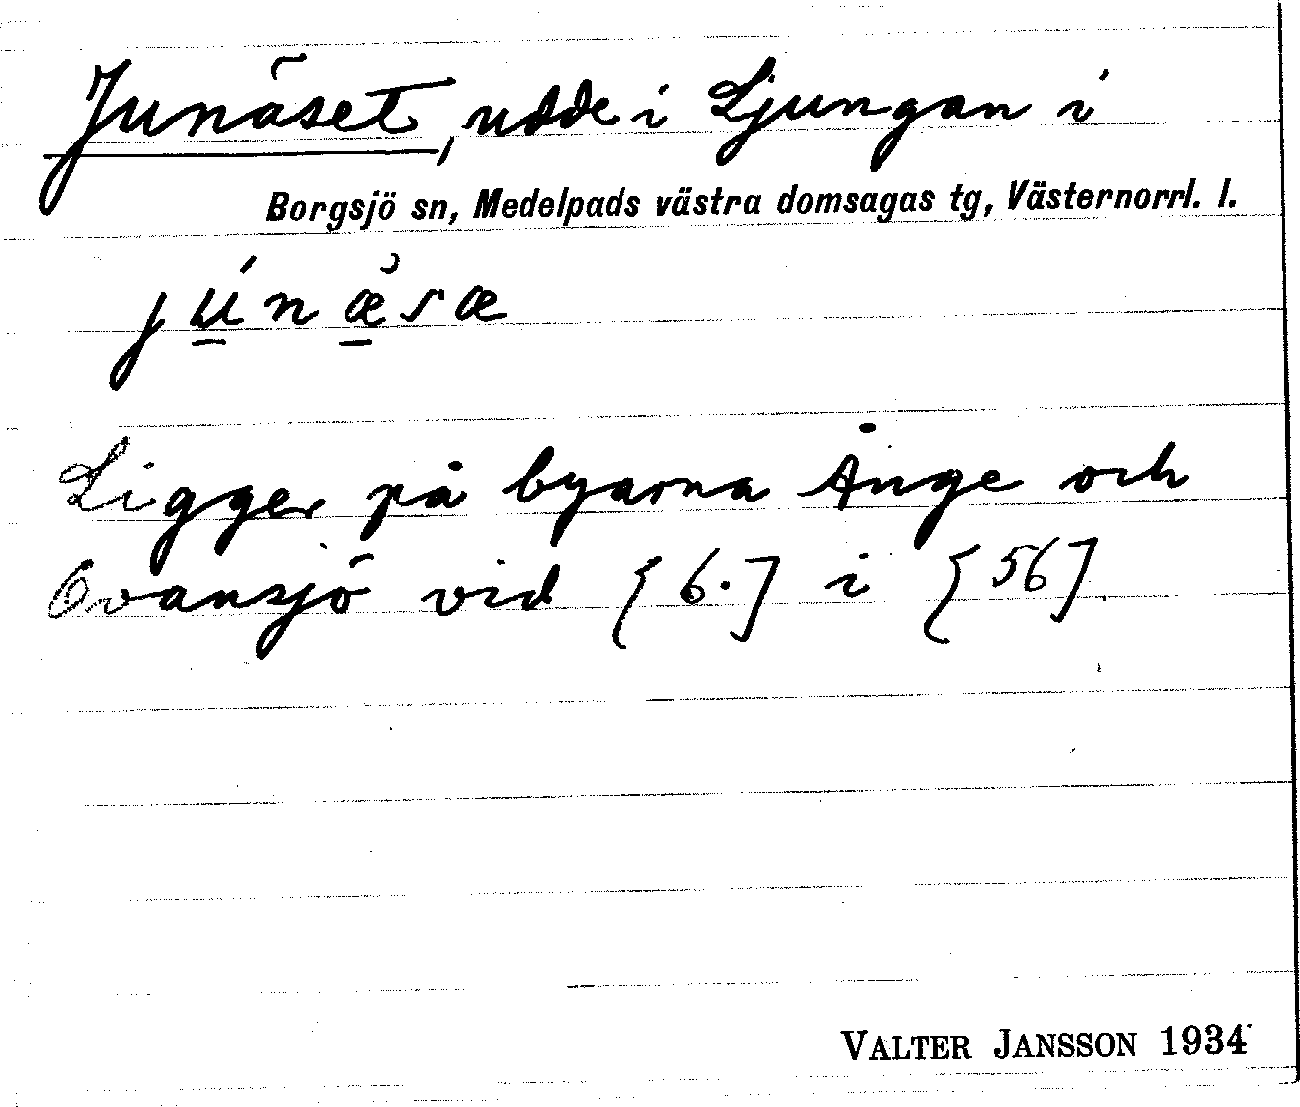 Junäset, udde i Ljungan i
Borgsjö sn, Medelpads västra domsagas tg, Västernorrl. l.
jú̱næ̱̀sæ
Ligger på byarna Ånge och
Ovansjö vid [6.] i [56].
VALTER JANSSON 1934